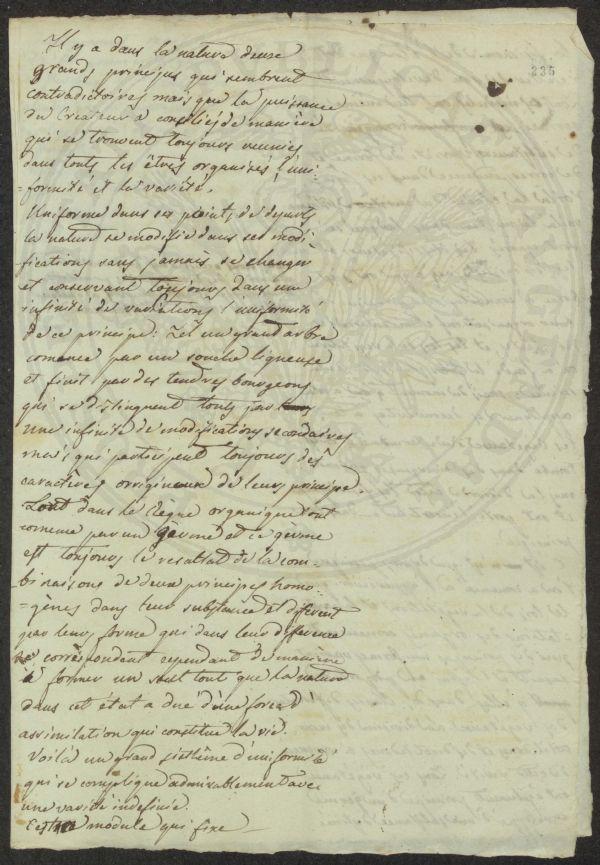 235
Il y a dans la nature deux
grands principes qui semblent
contradictoires mais que la puissance
du Createur a conciliés de manière
qui se trouvent toujours reunies
dans touts les êtres organisés l'uni-
=formité et la varieté.
Uniforme dans ses point, de departs
la nature se modifie dans ses modi-
fications sans jamais se changer
et conservant toujours dans une
infinité de variations l'uniformité
de ce principe: tel un grand arbre
comence par un souche ligneuse
et finit par des tendres bourgeons
qui se distinguent touts par
une infinité de modifications secondaires
mais qui participent toujours des
caractères origineux de leurs principe.
Tout dans le Règne organique tout
comence par un germe et ce germe
est toujours le resultat de la com-
binaisons de deux principes homo-
=gènes dans leur substance et different
par leurs forme qui dans leur difference
se correspondent cependant de manière
à former un seul tout que la nature
dans cet état a due d'une force d'
assimilation qui constitue la vie.
Voilà un grand sistême d'uniformité
qui se complique admirablement avec
une varieté indefinie.
module qui fixe